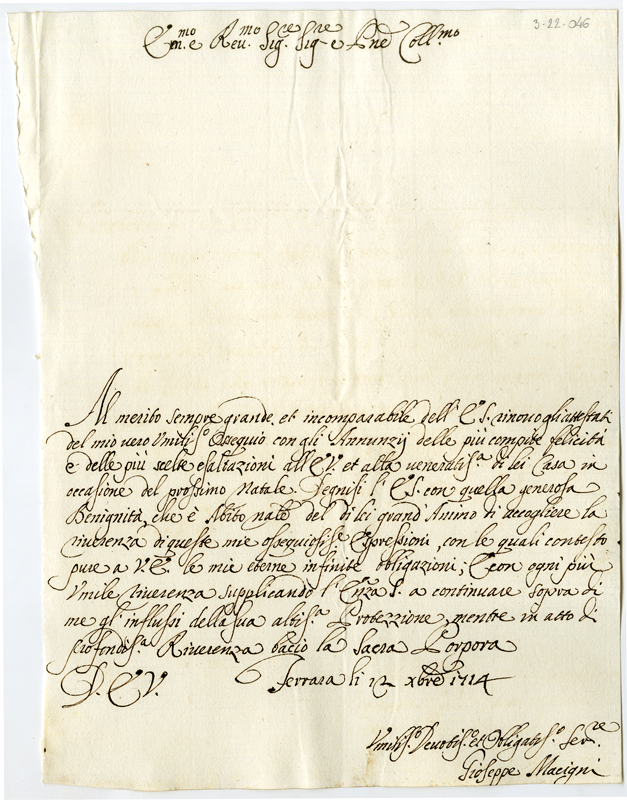 3-22-046
Em.mo e Reu.mo Sig.re Sig.re e Pne Coll.mo
Al merito sempre grande, et incomparabile dell' E.S. rinovo gli attestati
del mio vero Vmiliss.o Ossequio con gli Annunzij delle più compite felicità
e delle più scelte esaltazioni all' E.V. et alla veneratis.a di lei Casa in
occasione del prossimo Natale. Degnisi l' E.S. con quella generosa
Benignità, che è Abito nale del di lei grand' Animo di accogliere la
riverenza di queste mie ossequiosis.e Espressioni, con le quali contesto
pure a V.E. le mie eterne infinite obligazioni; E con ogni più
Vmile riverenza supplicando l' Em̃za S. a continuare sopra di
me gl' influssi della sua altis.a Protezzione, mentre in atto di
profondis.a Riverenza bacio la Sacra Porpora
D. E.V. Ferrara li 12 xbre 1714
Vmilis.o Devotis.o et Obligatis.o Ser.re
Gioseppe Macigni